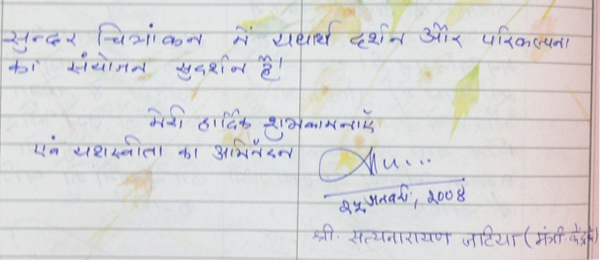 सुन्दर चित्रांकन में यथार्थ दर्शन और परिकल्पना
का संयोजन सुदर्शन है।
मेरी हार्दिक शुभकामनाएँ
एवं यशस्वीता का अभिनँदन
२५ जनवरी, २००४
श्री. सत्यनारायण जटिया (मंत्री